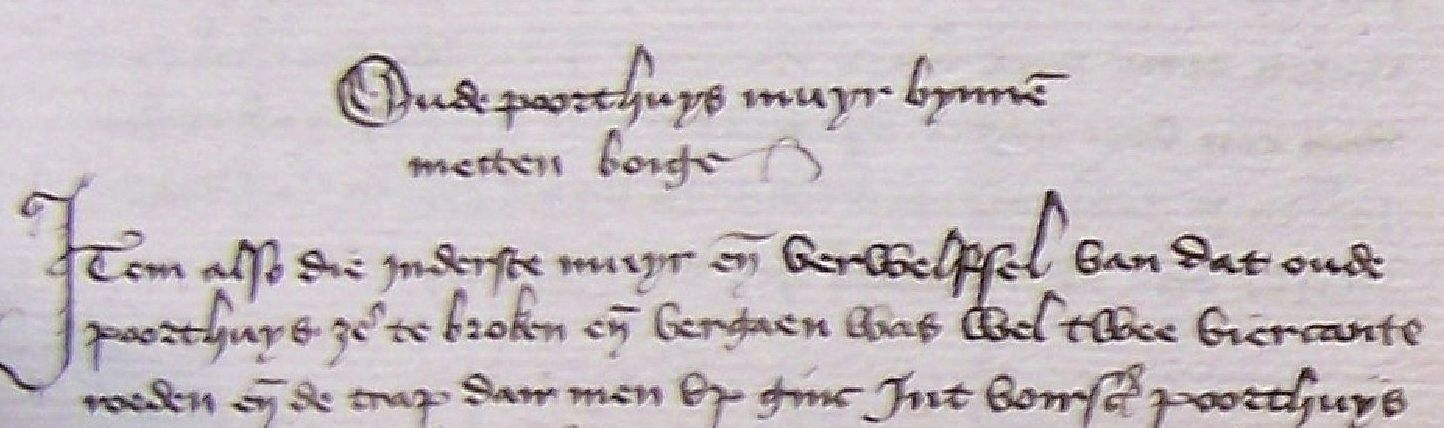 Oude poorthuys muyr bynnē
metten boige
Item also die inderste muyr eñ verwelfsel van dat oude
poorthuys zeʳ te broken eñ vergaen was wel twee viercante
roeden eñ de trap dair men op ginc Int voirscʳ poorthuys